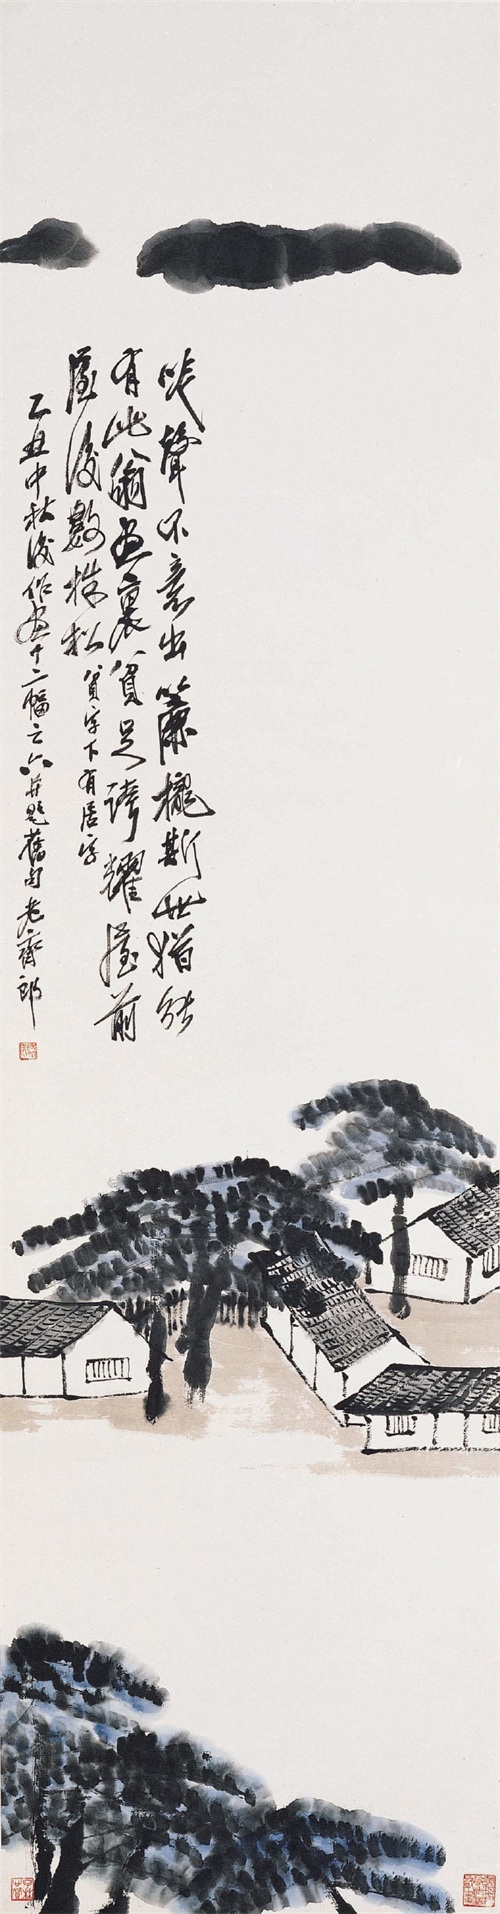 咲聲不意出簾櫳斯世猶能
有此翁畫裏貧足誇耀屋前
屋後數株松 貧字下有居字
乙丑中秋後作畫十二幅之六并題舊句老齊郎